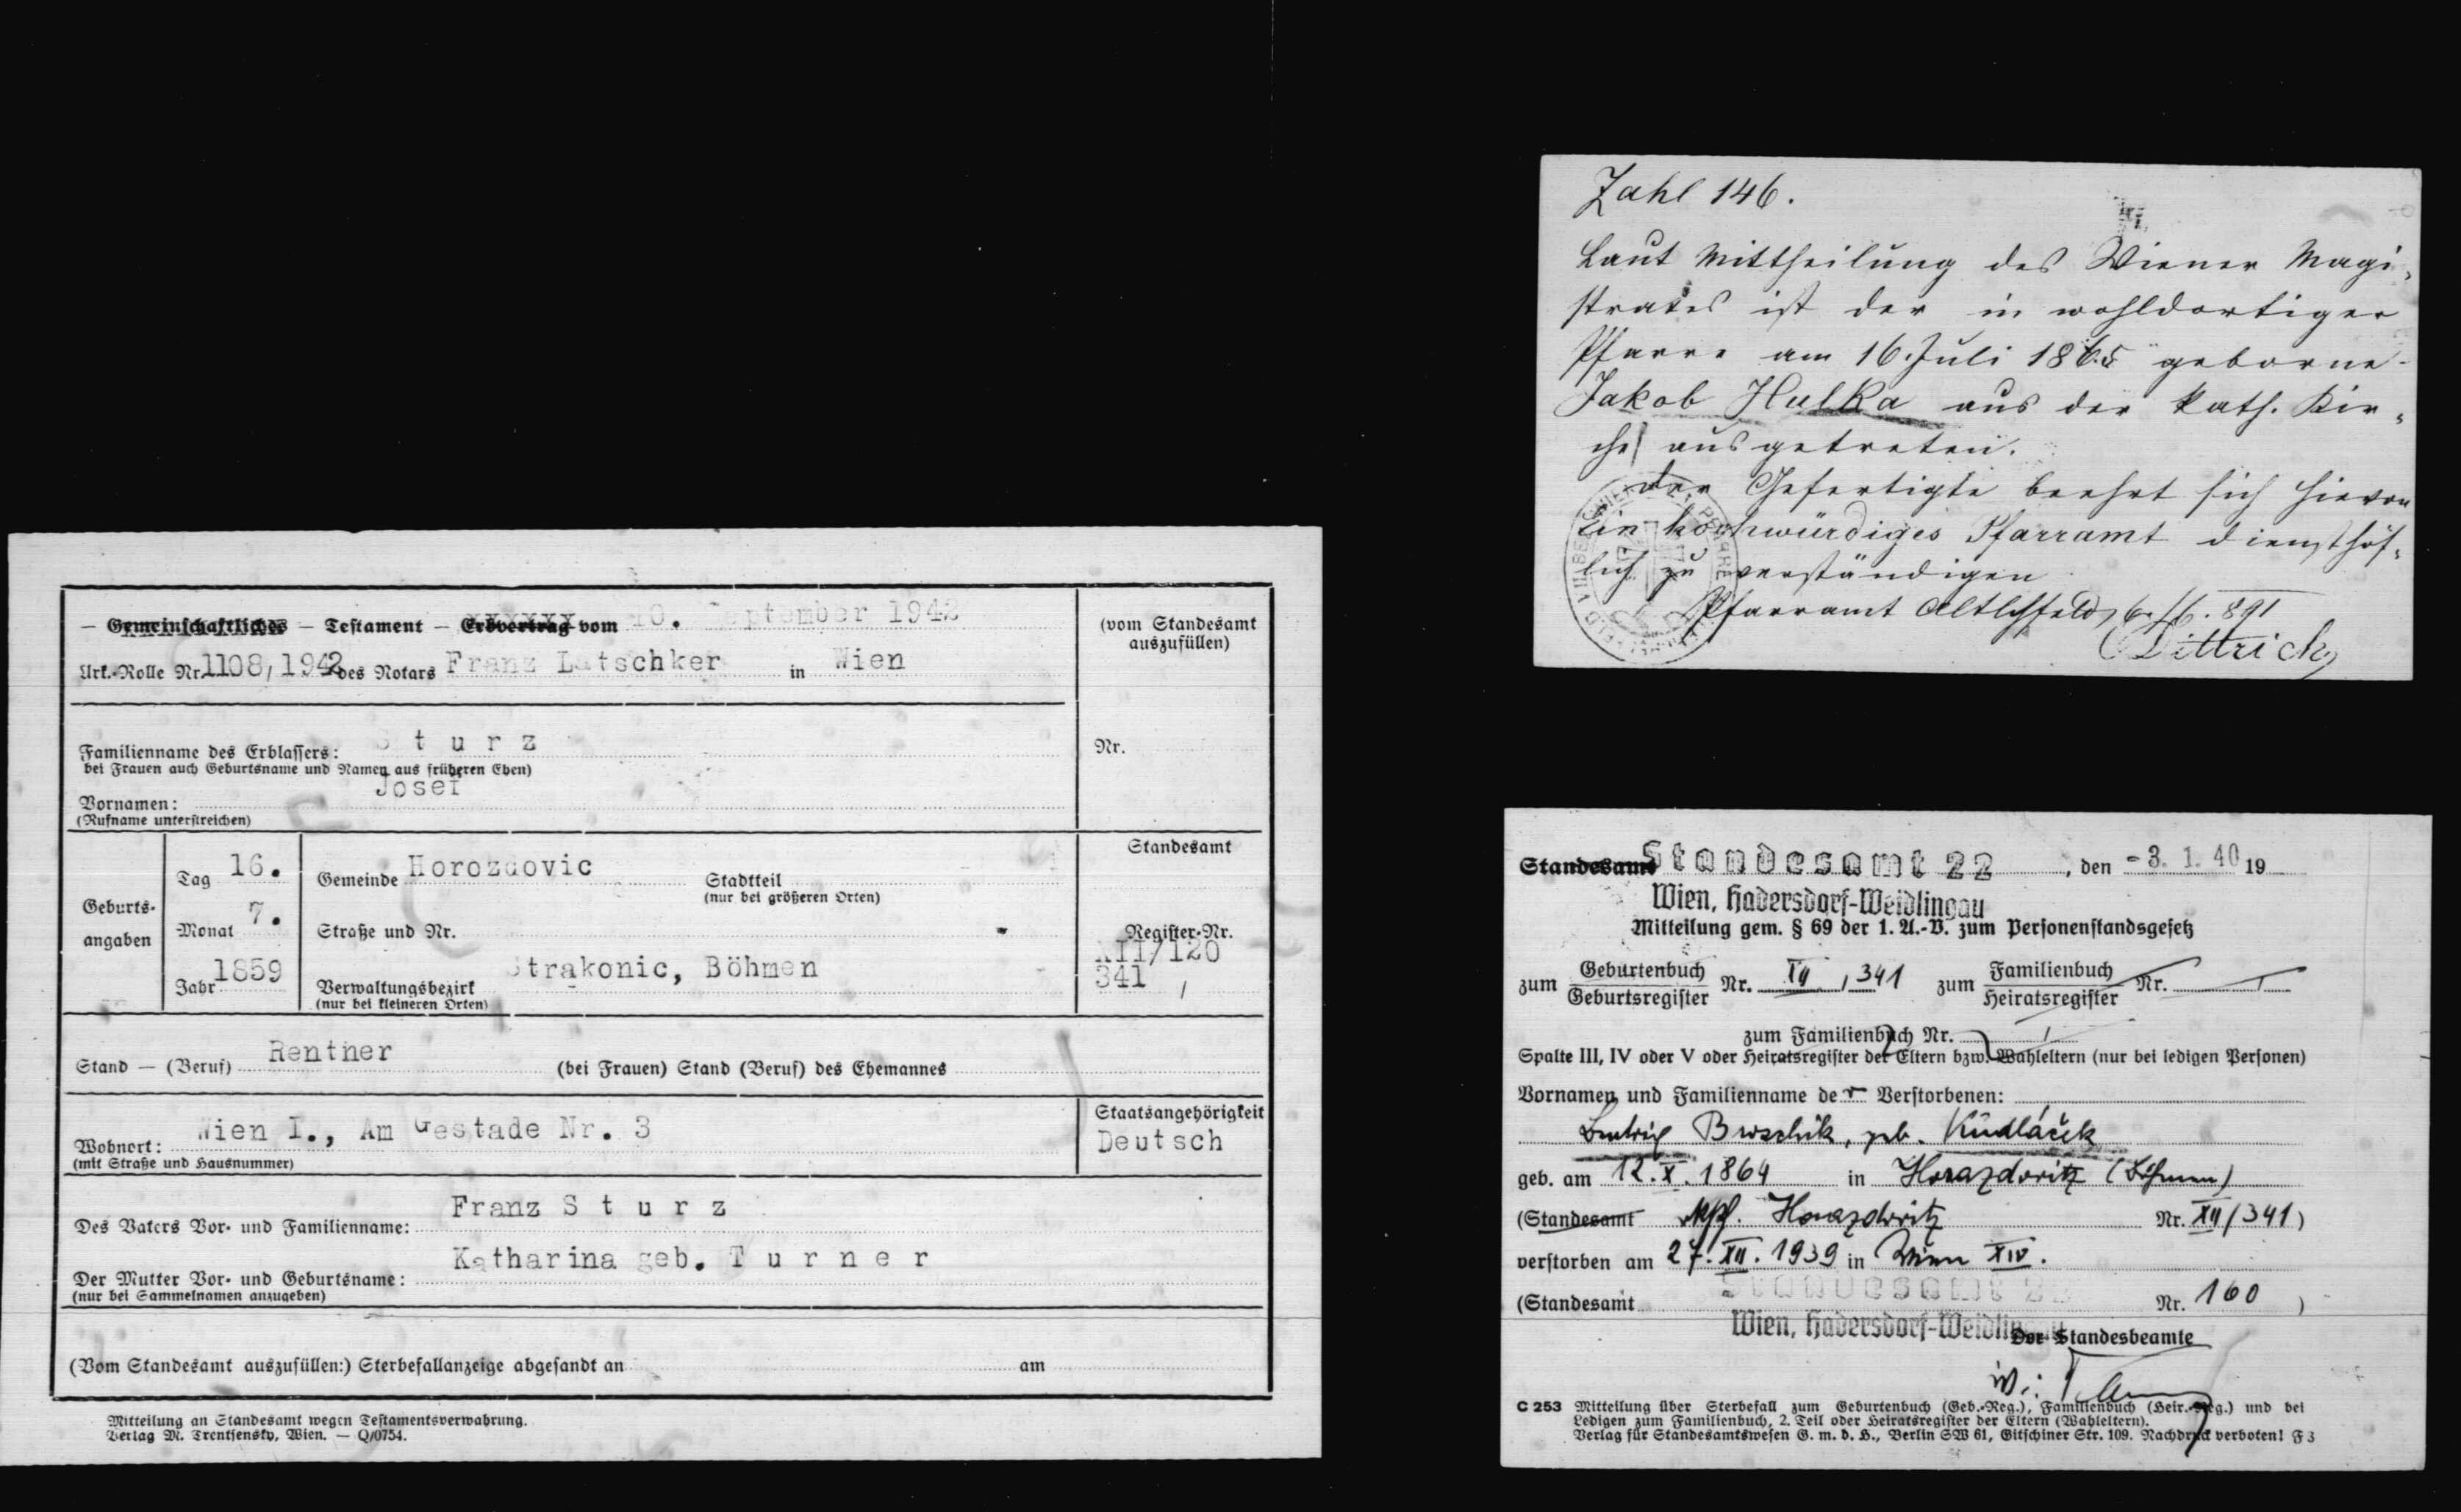 — Gemeinschaftliches — Testament — Erbvertrag vom 10. September 1942
Urk.-Rolle Nr. 1108/1942 des Notars Franz Latschker in Wien
(vom Standesamt
auszufüllen)
Familienname des Erblassers: S t u r z
bei Frauen auch Geburtsname und Namen aus früheren Ehen)
Nr.
Josef
Vornamen:
(Rufname unterstreichen)
Geburts-
angaben
Tag 16.
Monat 7.
Jahr 1859
Gemeinde Horozdovic Stadtteil
(nur bei größeren Orten)
Straße und Nr.
Strakonic, Böhmen
Verwaltungsbezirk
(nur bei kleineren Orten)
Standesamt
Register-Nr.
XII/120
341 /
Stand — (Beruf) Rentner (bei Frauen) Stand (Beruf) des Ehemannes
Wohnort: Wien I., Am Gestade Nr. 3
(mit Straße und Hausnummer)
Staatsangehörigkeit
Deutsch
Des Vaters Vor- und Familienname: Franz S t u r z
Der Mutter Vor- und Geburtsname: Katharina geb. T u r n e r
(nur bei Sammelnamen anzugeben)
(Vom Standesamt auszufüllen:) Sterbefallanzeige abgesandt an am
Mitteilung an Standesamt wegen Testamentsverwahrung.
Verlag M. Trentsensky, Wien. — Q/0754.
Zahl 146.
Laut Mittheilung des Wiener Magi-
strates ist der in wohldortiger
Pfarre am 16. Juli 1865 geborne
Jakob Hulka aus der kath. Kir-
che ausgetreten.
Der Gefertigte beehrt sich hievon
Ein hochwürdiges Pfarramt diensthöf-
lich zu verständigen
Pfarramt Altlchfeld, 6./6. 891
Dittrich
Standesamt Standesamt 22, den -3. 1. 40 19
Wien, Hadersdorf-Weidlingau
Mitteilung gem. § 69 der 1. A.-V. zum Personenstandsgesetz
zum Geburtenbuch Nr. XII / 341 zum Familienbuch Nr. /
Geburtsregister Heiratsregister
zum Familienbuch Nr. /
Spalte III, IV oder V oder Heiratsregister der Eltern bzw. Wahleltern (nur bei ledigen Personen)
Vornamen und Familienname der Verstorbenen:
geb. Kudláček
geb. am 12. X. 1864 in Horazdovitz (Böhmen)
(Standesamt Horazdovitz Nr. XII/341)
verstorben am 27. XII. 1939 in Wien XIV.
(Standesamt Standesamt 22 Nr. 160 )
Wien, Hadersdorf-Weidlingau
Der Standesbeamte
C 253 Mitteilung über Sterbefall zum Geburtenbuch (Geb.-Reg.), Familienbuch (Heir.-Reg.) und bei
Ledigen zum Familienbuch, 2. Teil oder Heiratsregister der Eltern (Wahleltern).
Verlag für Standesamtswesen G. m. b. H., Berlin SW 61, Gitschiner Str. 109. Nachdruck verboten! F 3